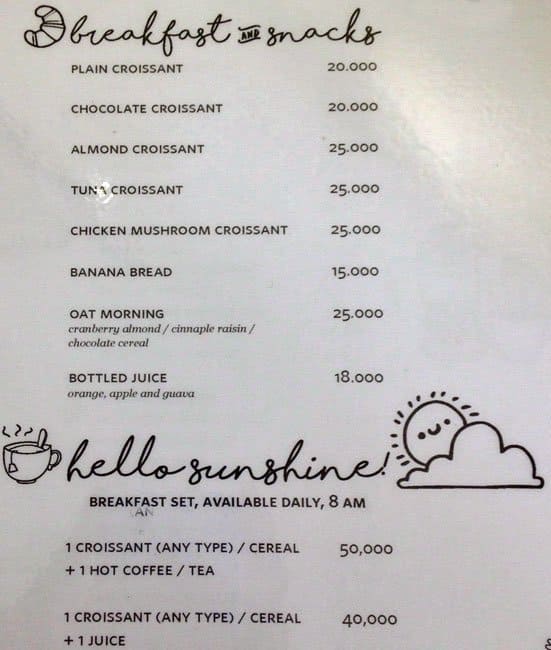 breakfast AND snacks
PLAIN CROISSANT 20.000
CHOCOLATE CROISSANT 20.000
ALMOND CROISSANT 25.000
TUNA CROISSANT 25.000
CHICKEN MUSHROOM CROISSANT 25.000
BANANA BREAD 15.000
OAT MORNING 25.000
cranberry almond / cinnaple raisin /
chocolate cereal
BOTTLED JUICE 18.000
orange, apple and guava
hello sunshine!
BREAKFAST SET, AVAILABLE DAILY, 8 AM
1 CROISSANT (ANY TYPE) / CEREAL 50,000
+ 1 HOT COFFEE / TEA
1 CROISSANT (ANY TYPE) / CEREAL 40,000
+ 1 JUICE